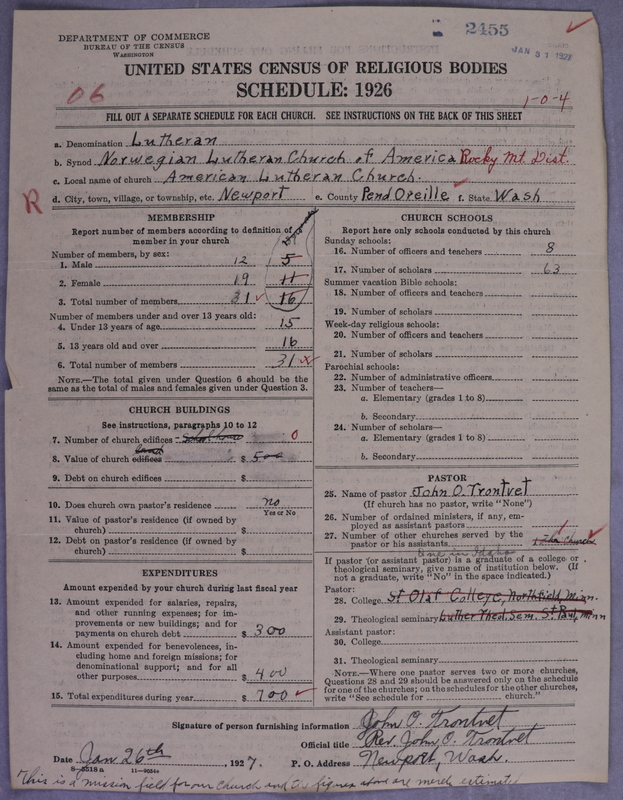 2455
DEPARTMENT OF COMMERCE
BUREAU OF THE CENSUS
WASHINGTON
JAN 31 1927
UNITED STATES CENSUS OF RELIGIOUS BODIES
SCHEDULE: 1926
06
1-0-4
FILL OUT A SEPARATE SCHEDULE FOR EACH CHURCH. SEE INSTRUCTIONS ON THE BACK OF THIS SHEET
a. Denomination Lutheran
b. Synod Norwegian Lutheran Church of America Rocky Mt. Dist.
c. Local name of church American Lutheran Church.
R
d. City, town, village, or township, etc. Newport e. County Pend Oreille f. State Wash
MEMBERSHIP
Report number of members according to definition of member in your church
Number of members, by sex:
1. Male 12 5
2. Female 19 11
3. Total number of members 31 16
Number of members under and over 13 years old:
4. Under 13 years of age 15
5. 13 years old and over 16
6. Total number of members 31
NOTE.—The total given under Question 6 should be the
same as the total of males and females given under Question 3.
CHURCH BUILDINGS
See instructions, paragraphs 10 to 12
7. Number of church edifices 0
8. Value of church edifices $ 500
9. Debt on church edifices $
10. Does church own pastor's residence no
Yes or No
11. Value of pastor's residence (if owned by
church) $
12. Debt on pastor's residence (if owned by
church) $
EXPENDITURES
Amount expended by your church during last fiscal year
13. Amount expended for salaries, repairs,
and other running expenses; for im-
provements or new buildings; and for
payments on church debt $ 300
14. Amount expended for benevolences, in-
cluding home and foreign missions; for
denominational support; and for all
other purposes $ 400
15. Total expenditures during year $ 700
CHURCH SCHOOLS
Report here only schools conducted by this church
Sunday schools:
16. Number of officers and teachers 8
17. Number of scholars 63
Summer vacation Bible schools:
18. Number of officers and teachers
19. Number of scholars
Week-day religious schools:
20. Number of officers and teachers
21. Number of scholars
Parochial schools:
22. Number of administrative officers
23. Number of teachers—
a. Elementary (grades 1 to 8)
b. Secondary
24. Number of scholars—
a. Elementary (grades 1 to 8)
b. Secondary
PASTOR
25. Name of pastor John O. Trontvet
(If church has no pastor, write "None")
26. Number of ordained ministers, if any, em-
ployed as assistant pastors
27. Number of other churches served by the
pastor or his assistants
one in Idaho
If pastor (or assistant pastor) is a graduate of a college or
theological seminary, give name of institution below. (If
not a graduate, write "No" in the space indicated.)
Pastor:
28. College St Olaf College, Northfield, Minn.
29. Theological seminary Luther Theol. Sem. St Paul, Minn
Assistant pastor:
30. College
31. Theological seminary
NOTE.—Where one pastor serves two or more churches,
Questions 28 and 29 should be answered only on the schedule
for one of the churches; on the schedules for the other churches,
write "See schedule for church."
Signature of person furnishing information John O. Trontvet
Official title Rev. John O. Trontvet
Date Jan 26th, 1927. P. O. Address Newport, Wash.
8-5518a 11-9054
This is a mission field for our church and the figures above are merely estimate